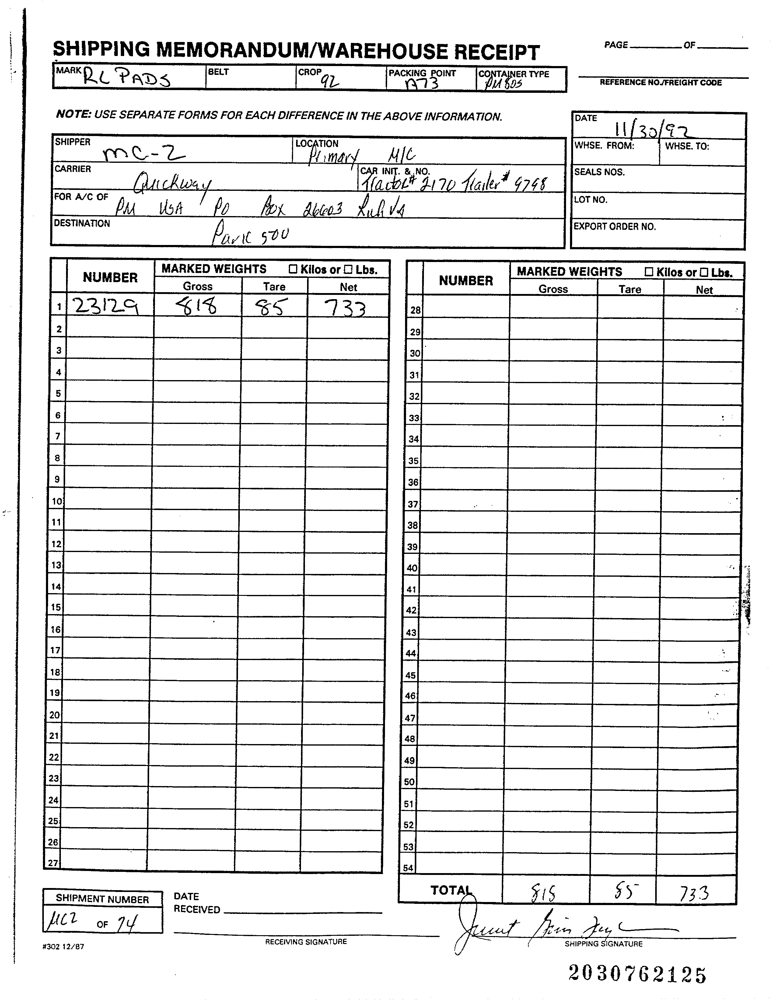 SHIPPING MEMORANDUM/WAREHOUSE RECEIPT
PAGE ____ OF ____
MARK RL PADS BELT CROP 92 PACKING POINT A73 CONTAINER TYPE PM BOS
REFERENCE NO./FREIGHT CODE
NOTE: USE SEPARATE FORMS FOR EACH DIFFERENCE IN THE ABOVE INFORMATION.
DATE 11/30/92
SHIPPER MC-2 LOCATION Primary M/C
WHSE. FROM: WHSE. TO:
CARRIER Quickway CAR INIT. & NO. Tractor# 2170 Trailer# 9798
SEALS NOS.
FOR A/C OF PM USA PO Box 26603 Rich Va
LOT NO.
DESTINATION Park 500
EXPORT ORDER NO.
NUMBER MARKED WEIGHTS ☐ Kilos or ☐ Lbs.
Gross Tare Net
1 23129 818 85 733
2
3
4
5
6
7
8
9
10
11
12
13
14
15
16
17
18
19
20
21
22
23
24
25
26
27
NUMBER MARKED WEIGHTS ☐ Kilos or ☐ Lbs.
Gross Tare Net
28
29
30
31
32
33
34
35
36
37
38
39
40
41
42
43
44
45
46
47
48
49
50
51
52
53
54
TOTAL 818 85 733
SHIPMENT NUMBER
MC2 OF 74
DATE
RECEIVED
RECEIVING SIGNATURE
SHIPPING SIGNATURE
#302 12/87
2030762125